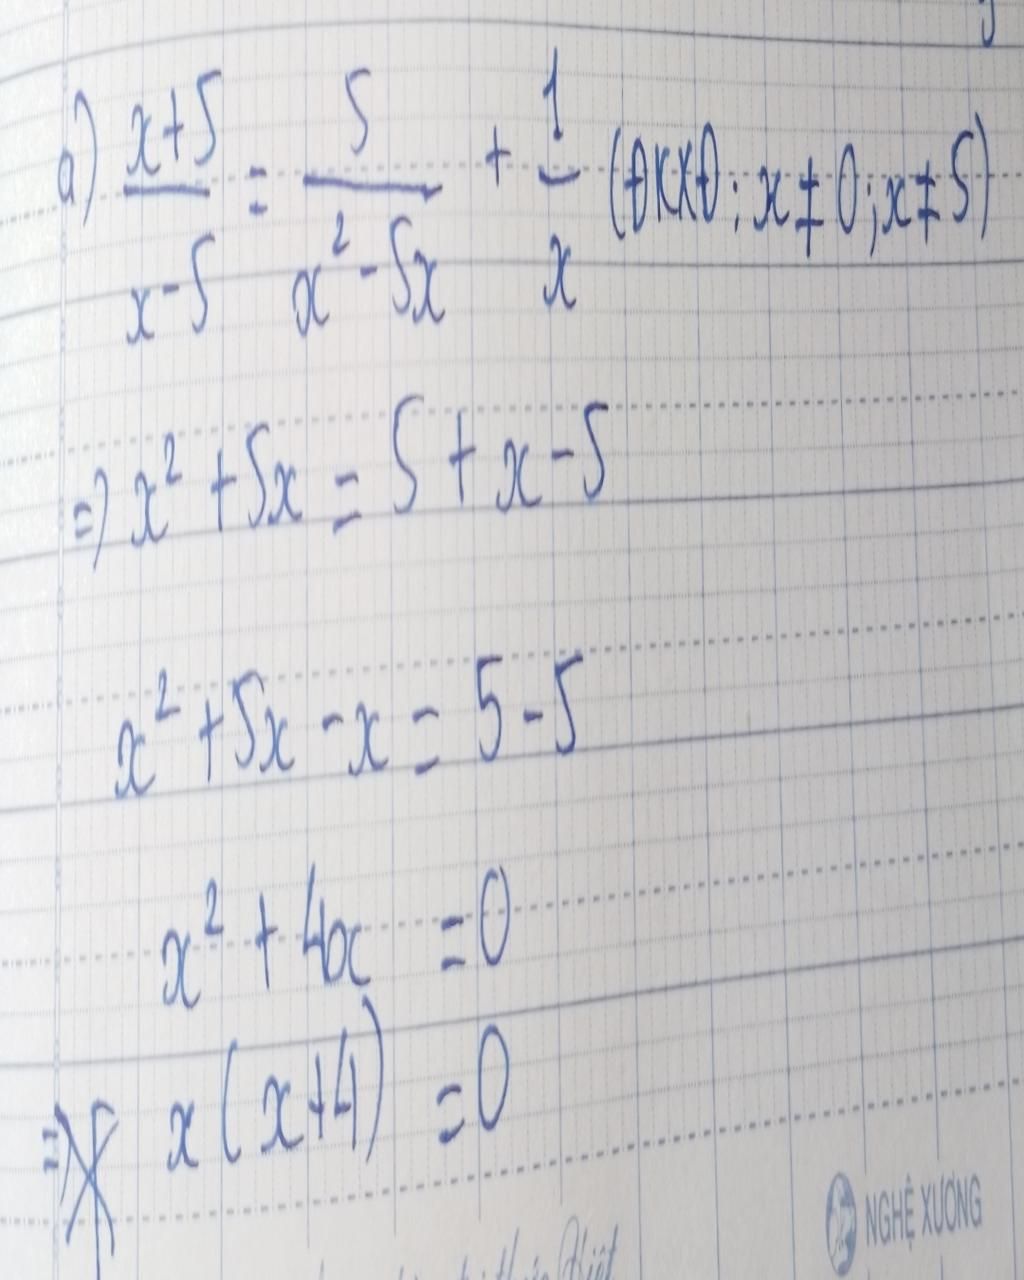 a) (x+5)/(x-5) = 5/(x²-5x) + 1/x (ĐKXĐ: x≠0; x≠5)
=> x² + 5x = 5 + x - 5
x² + 5x - x = 5 - 5
x² + 4x = 0
=> x(x+4) = 0
NGHỆ XƯƠNG